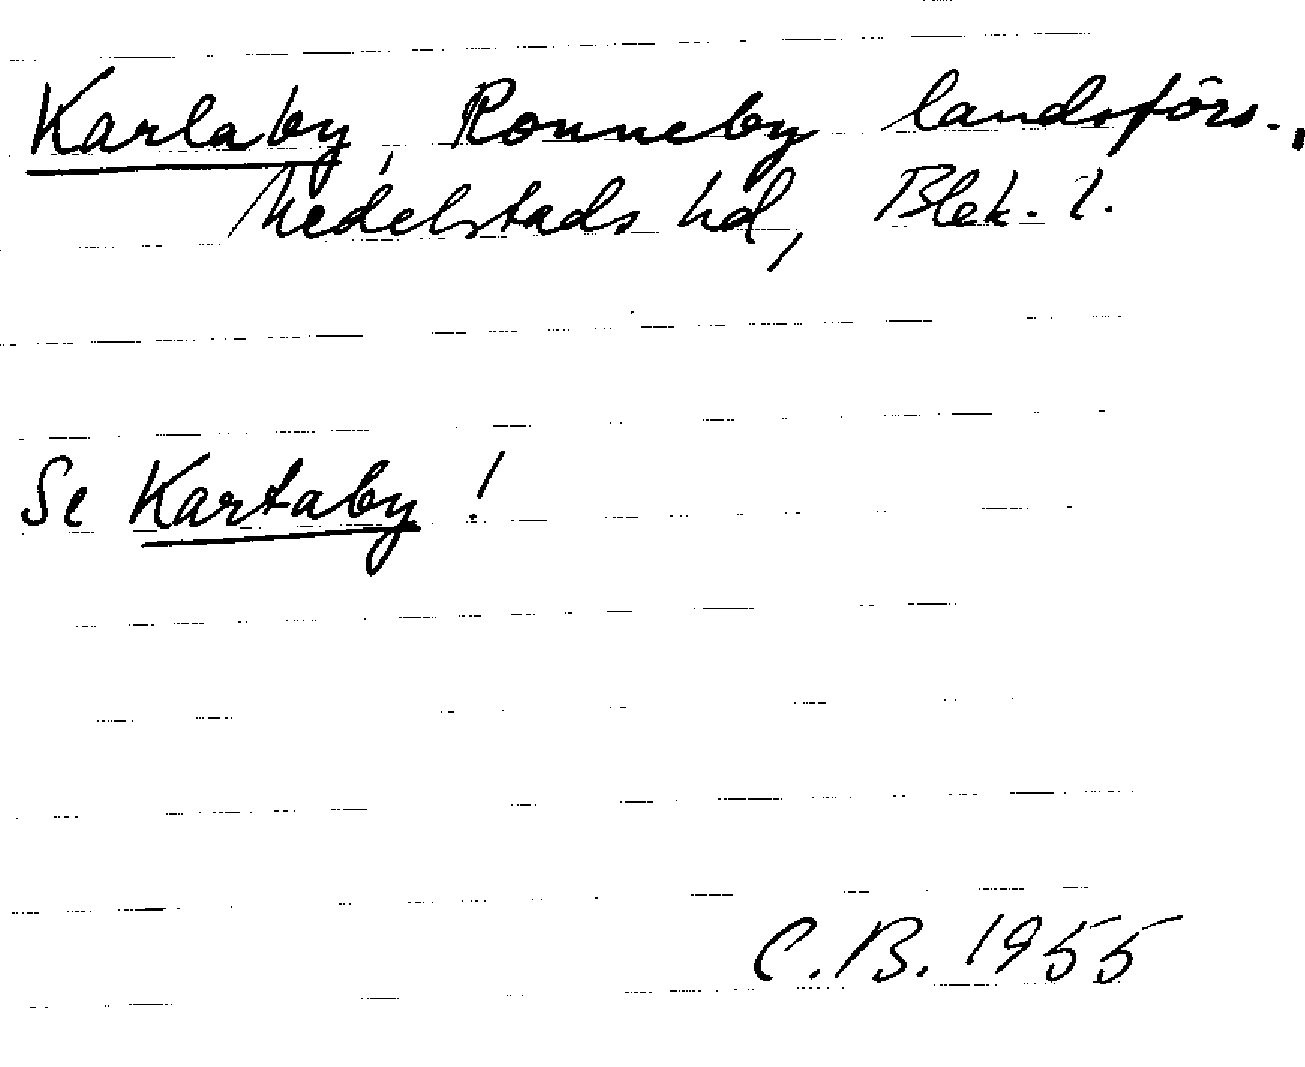 Karlaby, Ronneby landsförs.,
Medelstads hd, Blek. l.
Se Kartaby !
C.B. 1955